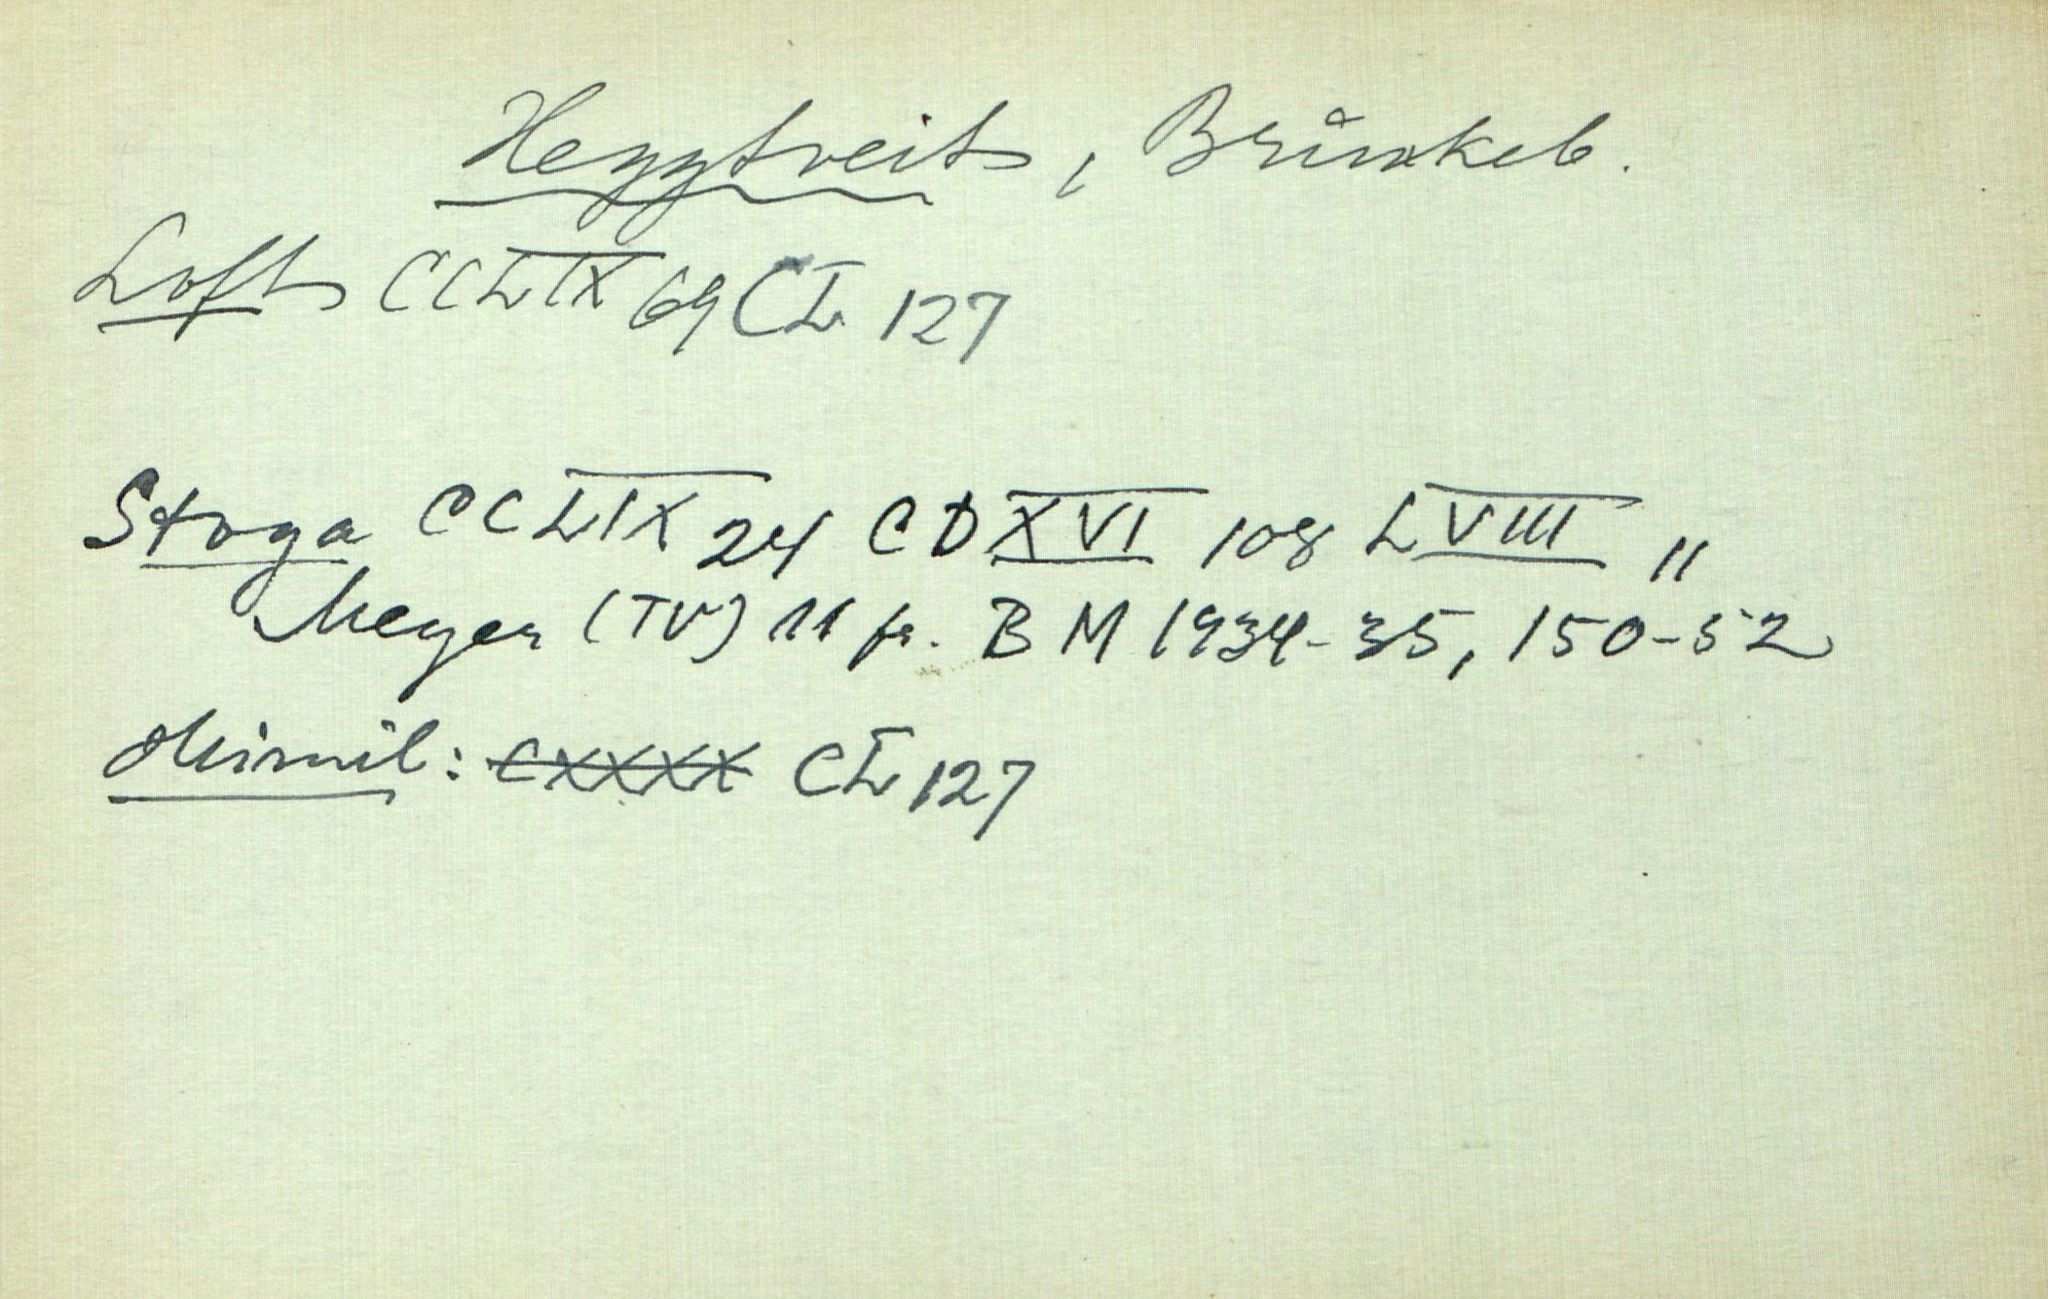 Heggtveit, Brunkeb.
Loft CCLIX 69 CL 127
Stoga CCLIX 24 CDXVI 108 LVIII 11
Meyer (TV) 11 fr. BM 1934-35, 150-52
CXXXX CL 127